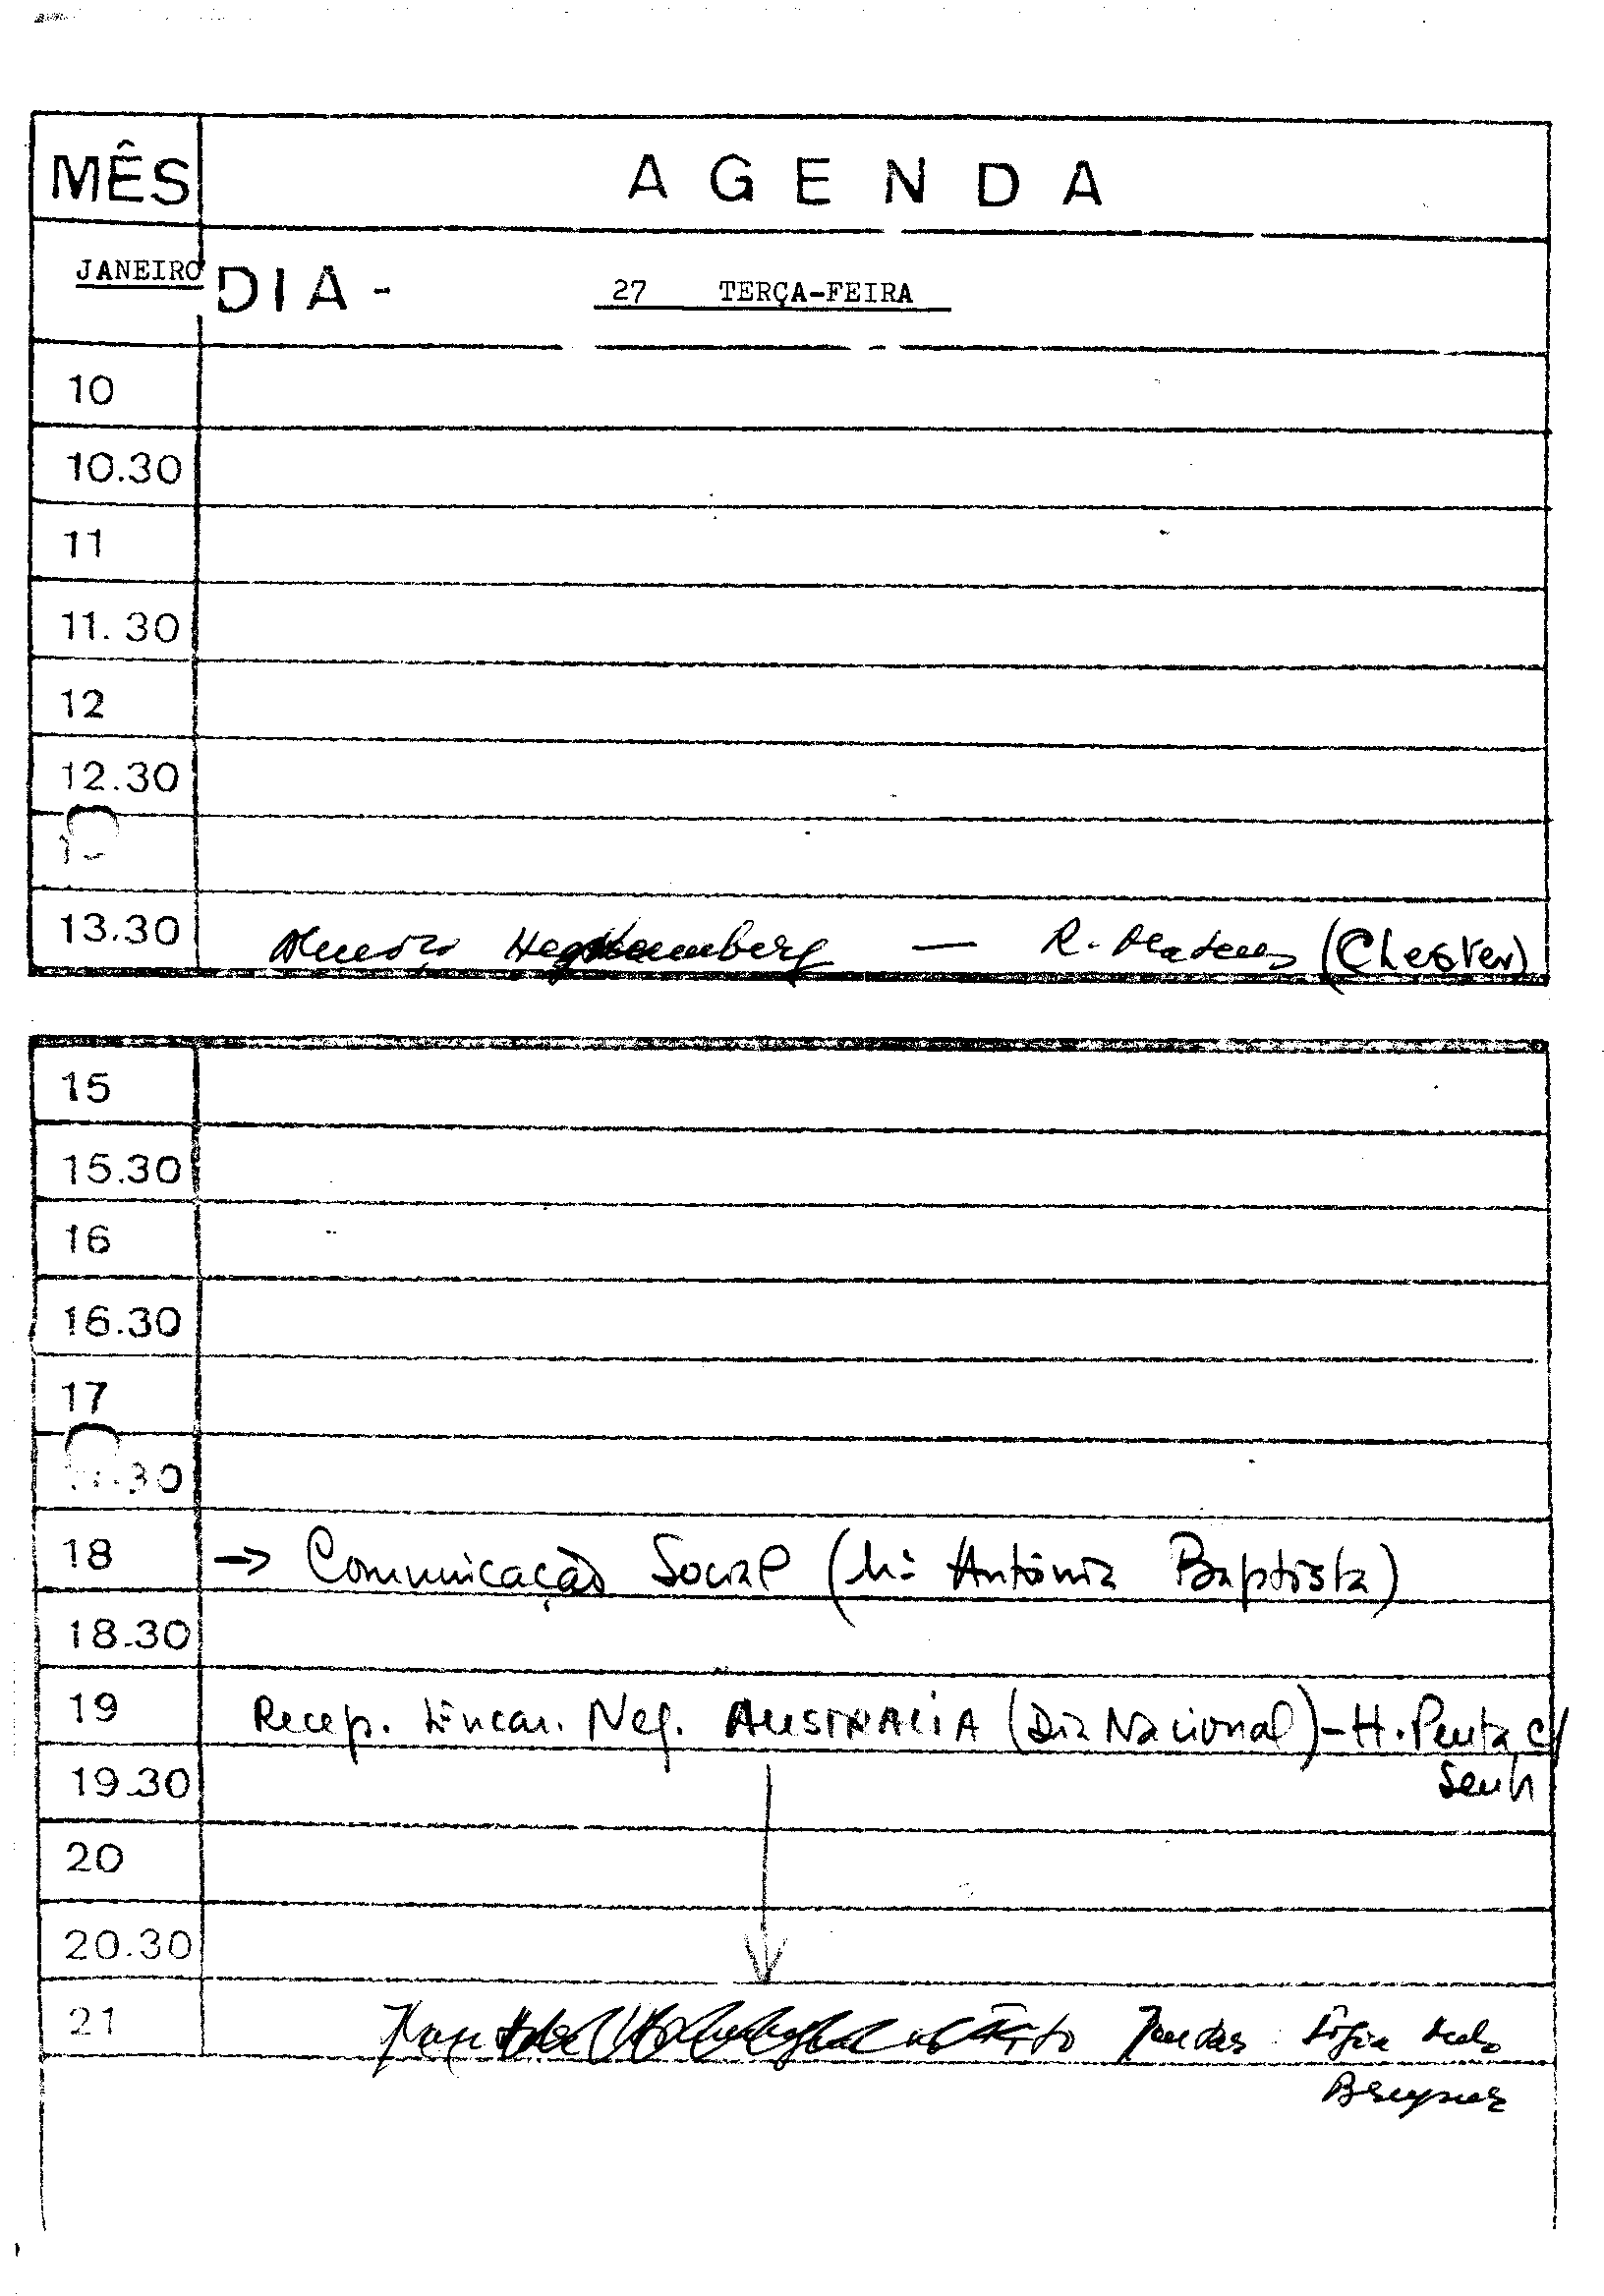 MÊS AGENDA
JANEIRO DIA - 27 TERÇA-FEIRA
10
10.30
11
11.30
12
12.30
13.30 Almoço — R. (Chester)
15
15.30
16
16.30
17
.30
18 → Comunicação Social (Mª Antónia Baptista)
18.30
19 Recep. Encar. Neg. AUSTRALIA (Dia Nacional) - H. Penta c/
Senh
19.30
20
20.30
21 Jantar